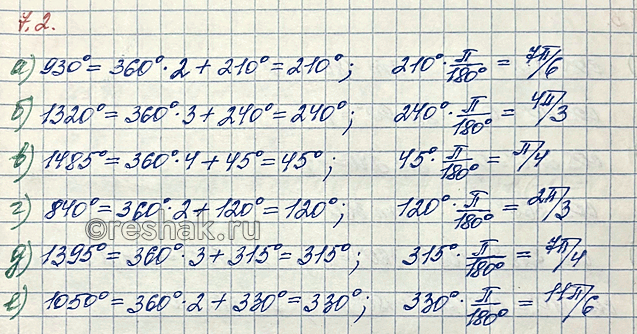 7.2.
а) 930° = 360°·2 + 210° = 210°; 210°·π/180° = 7π/6
б) 1320° = 360°·3 + 240° = 240°; 240°·π/180° = 4π/3
в) 1485° = 360°·4 + 45° = 45°; 45°·π/180° = π/4
г) 840° = 360°·2 + 120° = 120°; 120°·π/180° = 2π/3
©reshak.ru
д) 1395° = 360°·3 + 315° = 315°; 315°·π/180° = 7π/4
е) 1050° = 360°·2 + 330° = 330°; 330°·π/180° = 11π/6